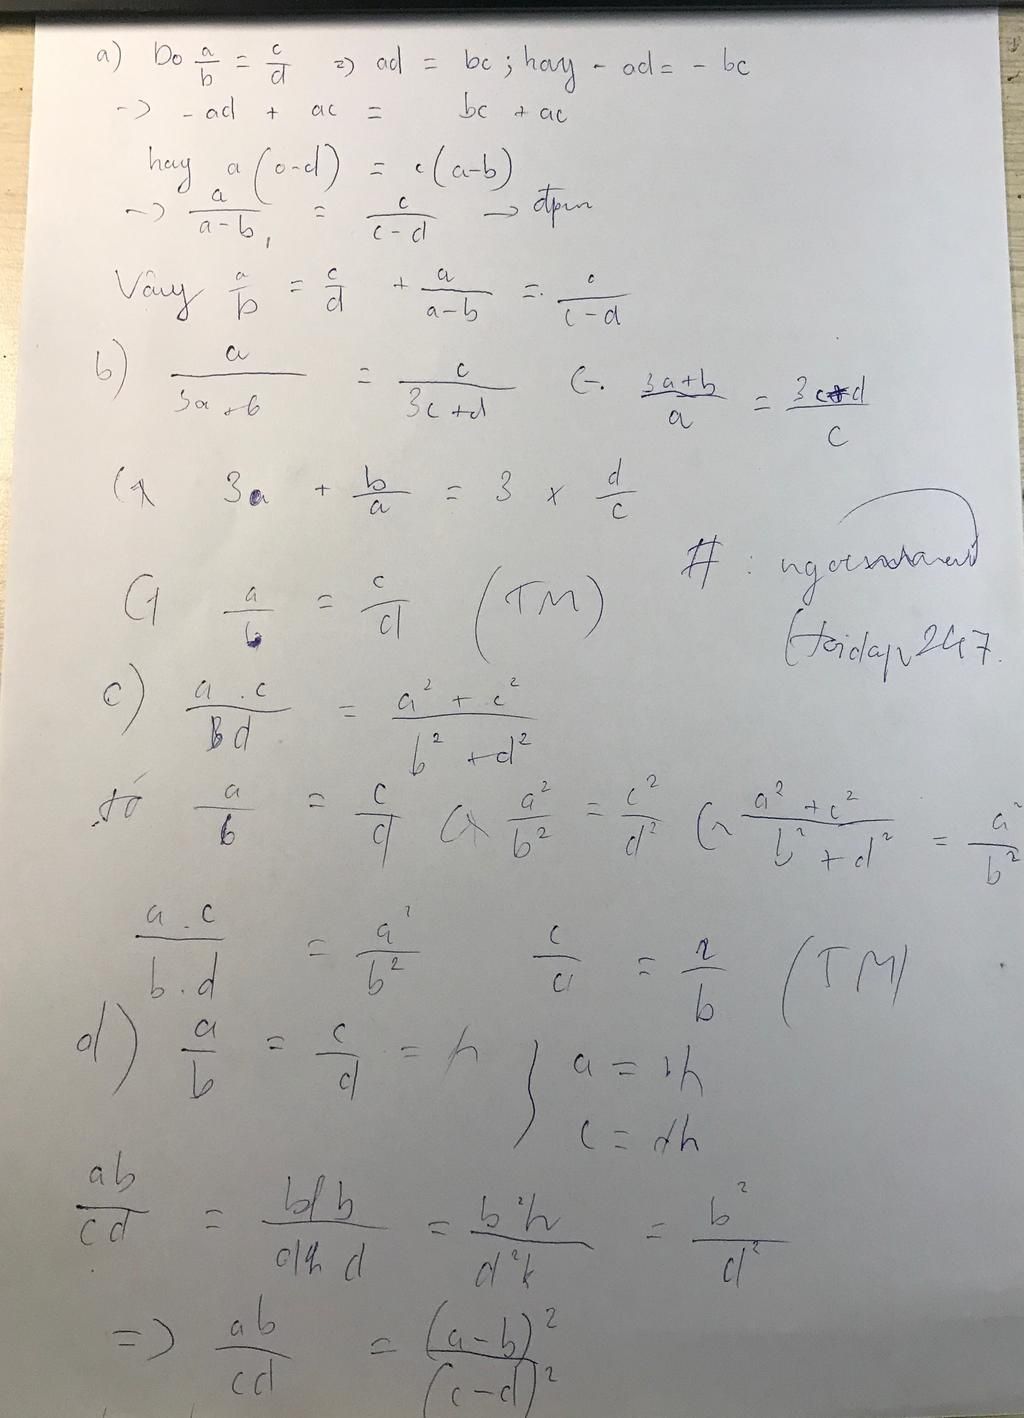 a) Do a/b = c/d => ad = bc ; hay - ad = - bc
-> - ad + ac = bc + ac
hay a (c-d) = c (a-b)
-> a/(a-b) = c/(c-d) -> đpcm
Vây a/b = c/d + a/(a-b) = c/(c-d)
b) a/(3a+b) = c/(3c+d) (-. (3a+b)/a = (3c+d)/c
3a + b/a = 3 x d/c
a/b = c/d (TM)
# :
toidap247.
c) a.c/bd = (a² + c²)/(b² + d²)
từ a/b = c/d a²/b² = c²/d² (a² + c²)/(b² + d²) = a²/b²
a.c/b.d = a²/b² c/d = a/b (TM)
d) a/b = c/d = h } a = bh
c = dh
ab/cd = b²h/d²k = b²/d²
=> ab/cd = (a-b)²/(c-d)²